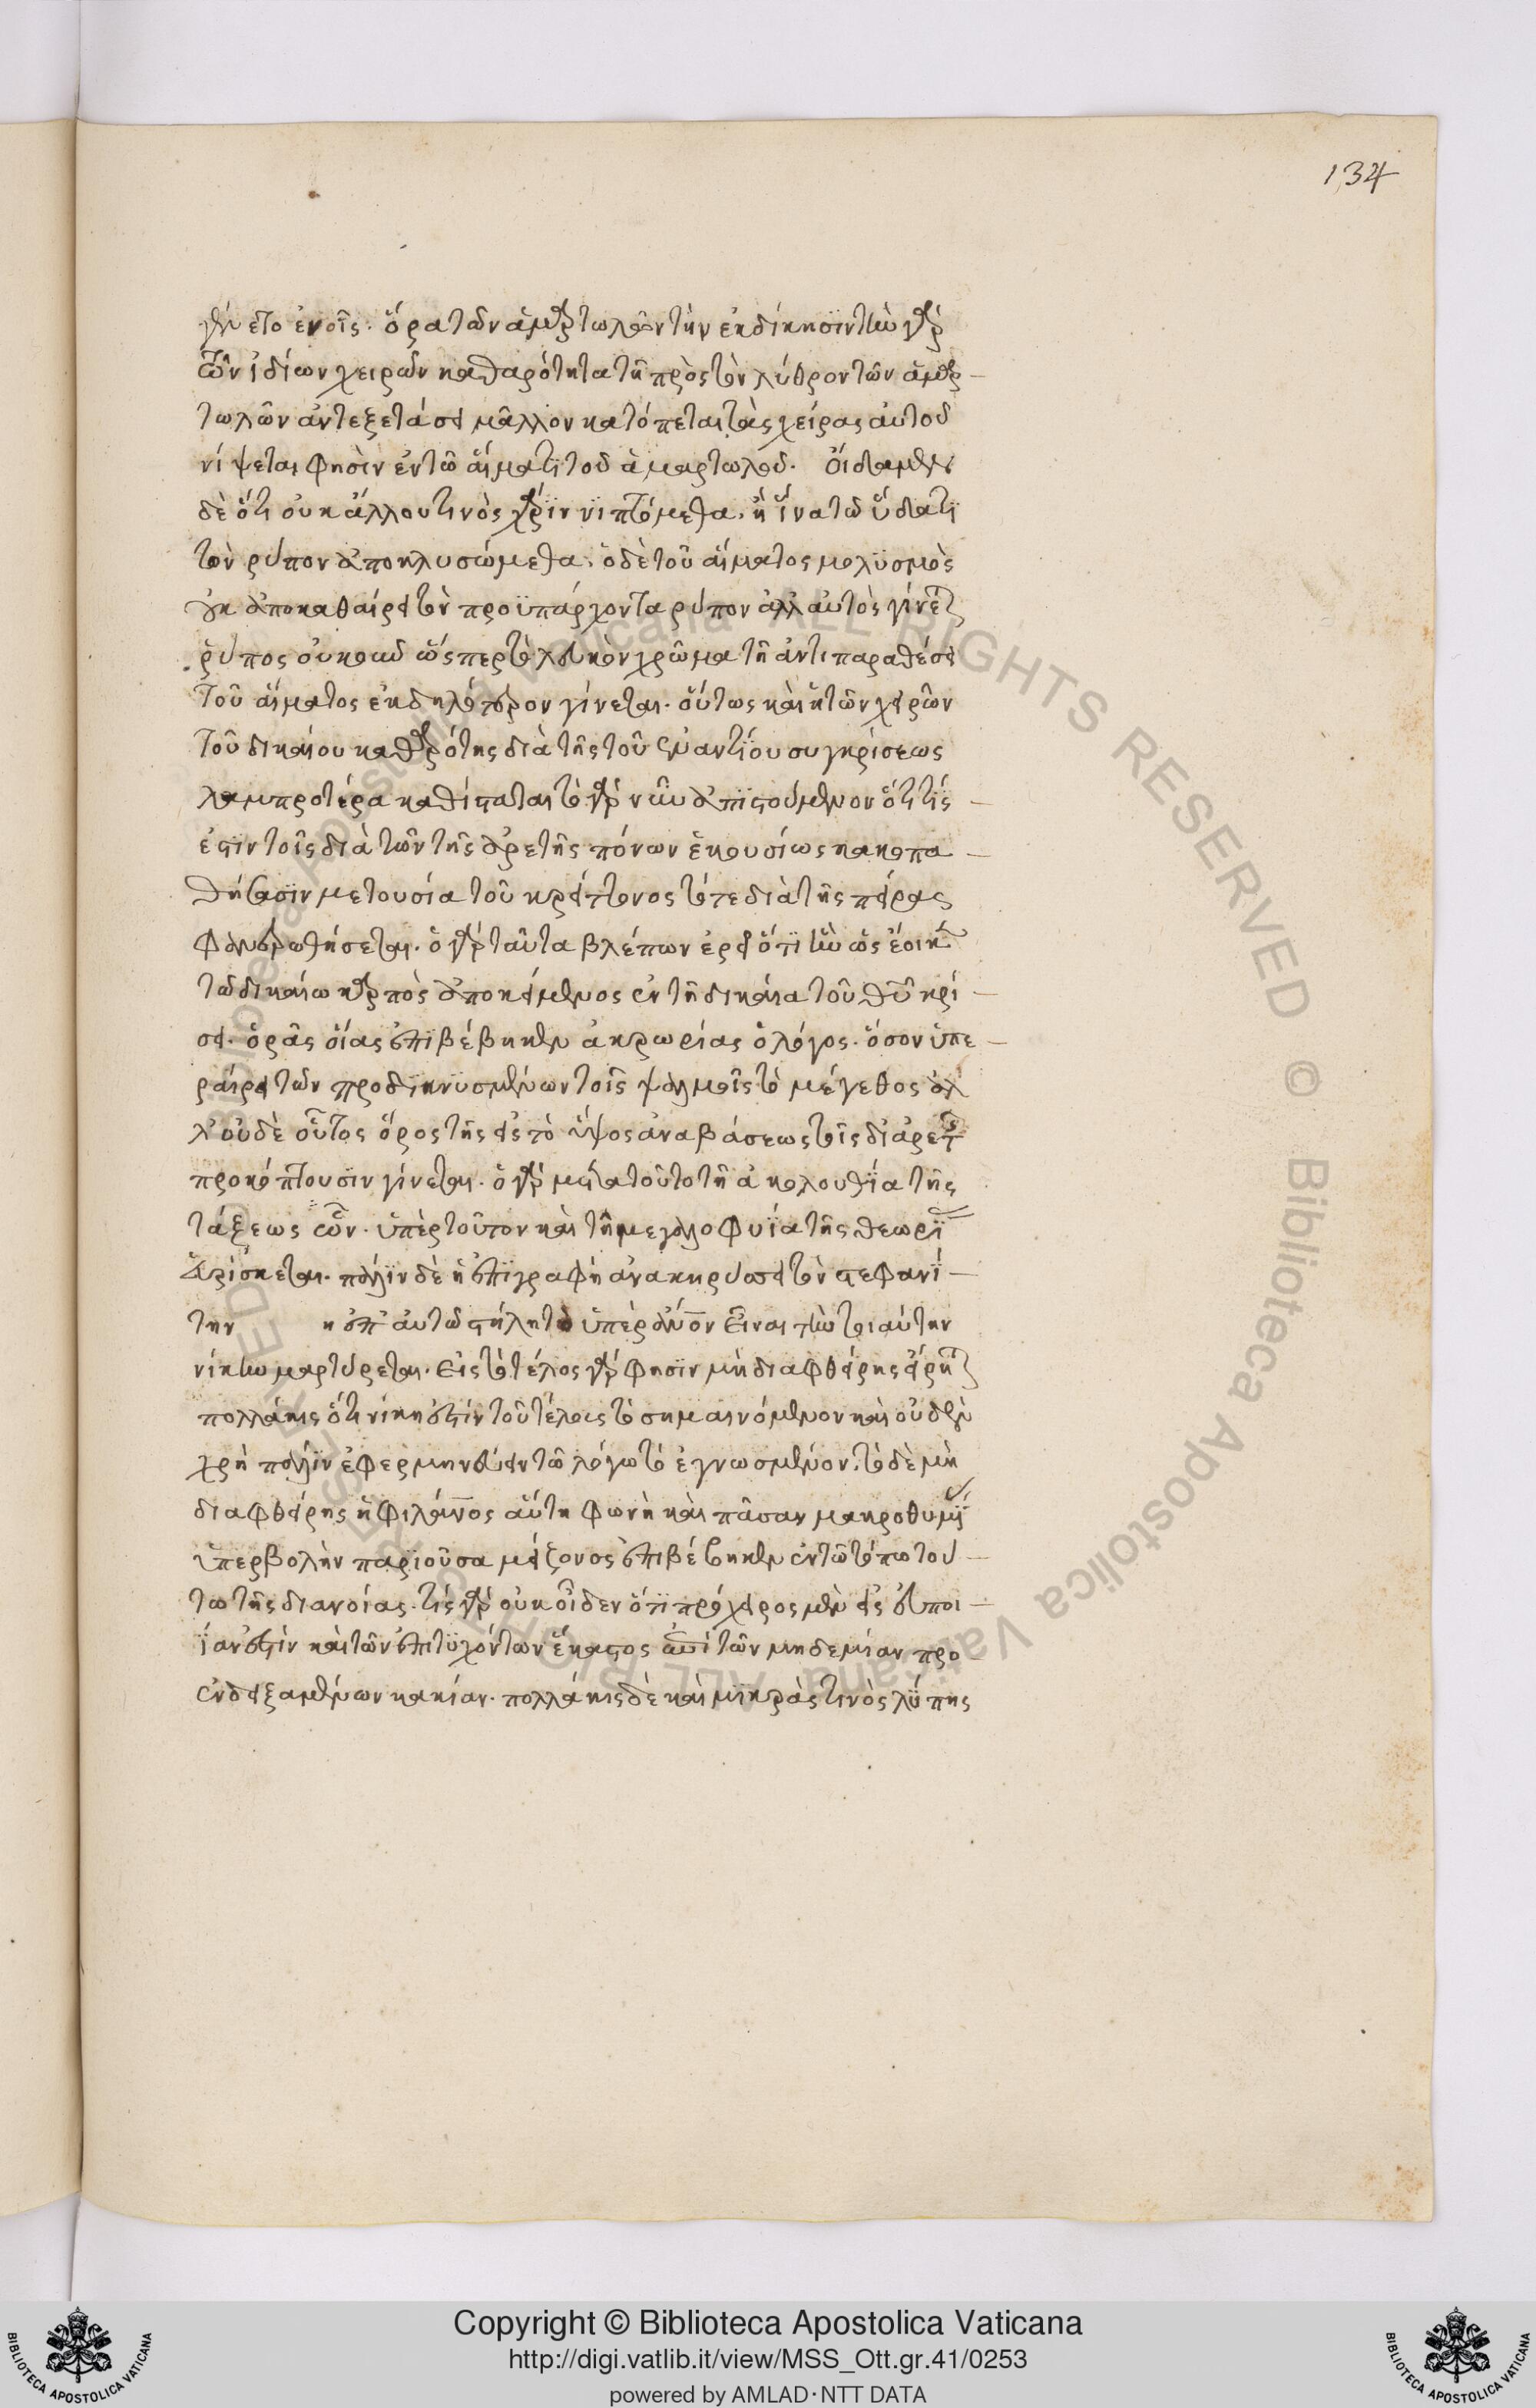 134
γένετο ἐν οἷς. ὁρᾷ τῶν ἁμαρτωλῶν τὴν ἐκδίκησιν τὴν γὰρ
τῶν ἰδίων χειρῶν καθαρότητα τῇ πρὸς τὸν λύθρον τῶν ἁμαρ
τωλῶν ἀντεξετάσει μᾶλλον κατόπεται τὰς χεῖρας αὐτοῦ
νίψεται φησὶν ἐν τῷ αἵματι τοῦ ἁμαρτωλοῦ. οἴδαμεν
δὲ ὅτι οὐκ ἄλλου τινὸς χάριν νιπτόμεθα. ἢ ἵνα τῷ ὕδατι
τὸν ρύπον ἀποκλυσώμεθα. ὁ δὲ τοῦ αἵματος μολυσμὸς
οὐκ ἀποκαθαίρει τὸν προϋπάρχοντα ρύπον ἀλλ' αὐτὸς γίνεται
ρύπος οὐκοῦν ὥσπερ τὸ λευκὸν χρῶμα τῇ ἀντιπαραθέσει
τοῦ αἵματος ἐκδηλότερον γίνεται. οὕτως καὶ ἡ τῶν χειρῶν
τοῦ δικαίου καθαρότης διὰ τῆς τοῦ ἐναντίου συγκρίσεως
λαμπροτέρα καθίσταται τὸ γὰρ νῦν ἀπιστούμενον ὅτι τίς
ἐστιν τοῖς διὰ τῶν τῆς ἀρετῆς πόνων ἑκουσίως κακοπα
θήσασιν μετουσία τοῦ κρείττονος τότε διὰ τῆς πείρας
φανερωθήσεται. ὁ γὰρ ταῦτα βλέπων ἐρεῖ ὅτι ἦν ὡς ἔοικε
τῷ δικαίῳ καρπὸς ἀποκείμενος ἐν τῇ δικαία τοῦ θυ κρί
σει. ὁρᾷς οἵας ἐπιβέβηκεν ἀκρωρίας ὁ λόγος. ὅσον ὑπε
ραίρει τῶν προδικνυσμένων τοῖς ψαλμοῖς τὸ μέγεθος ἀλ
λ' οὐδὲ οὗτος ὅρος τῆς εἰς τὸ ὕψος ἀναβάσεως τοῖς δι' ἀρετῆς
προκόπτουσιν γίνεται. ὁ γὰρ μετὰ τοῦτο τῇ ἀκολουθία τῆς
τάξεως ὢν. ὑπὲρ τοῦτον καὶ τῇ μεγαλοφυΐα τῆς θεωρίας
εὑρίσκεται. πάλιν δὲ ἡ ἐπιγραφὴ ἀνακηρύσσει τὸν στεφανί
την η ἐπ' αὐτῷ στήλη τὸ ὑπὲρ ἄνον εἶναι τὴν τοιαύτην
νίκην μαρτύρεται. εἰς τὸ τέλος γὰρ φησὶν μὴ διαφθείρης εἴρηται
πολλάκις ὅτι νίκη ἐστὶν τοῦ τέλους τὸ σημαινόμενον καὶ οὐδὲν
χρὴ πάλιν ἐφερμηνεύειν τῷ λόγω τὸ ἐγνωσμένον. τὸ δὲ μὴ
διαφθείρης ἡ φιλάνος αὕτη φωνὴ καὶ πᾶσαν μακροθυμίας
ὑπερβολὴν παριοῦσα μείζονος ἐπιβέβηκεν ἐν τῷ τόπω τού
τω τῆς διανοίας. τίς γὰρ οὐκ οἶδεν ὅτι πρόχειρος μὲν εἰς εὐποι
ΐαν ἐστὶν καὶ τῶν ἐπιτυχόντων ἕκαστος ἀντὶ τῶν μηδεμίαν προ
ενδειξαμένων κακίαν. πολλάκις δὲ καὶ μικρὰς τινὸς λύπης
Copyright © Biblioteca Apostolica Vaticana
http://digi.vatlib.it/view/MSS_Ott.gr.41/0253
powered by AMLAD·NTT DATA
BIBLIOTECA APOSTOLICA VATICANA
BIBLIOTECA APOSTOLICA VATICANA
Biblioteca Apostolica Vaticana ALL RIGHTS RESERVED ©